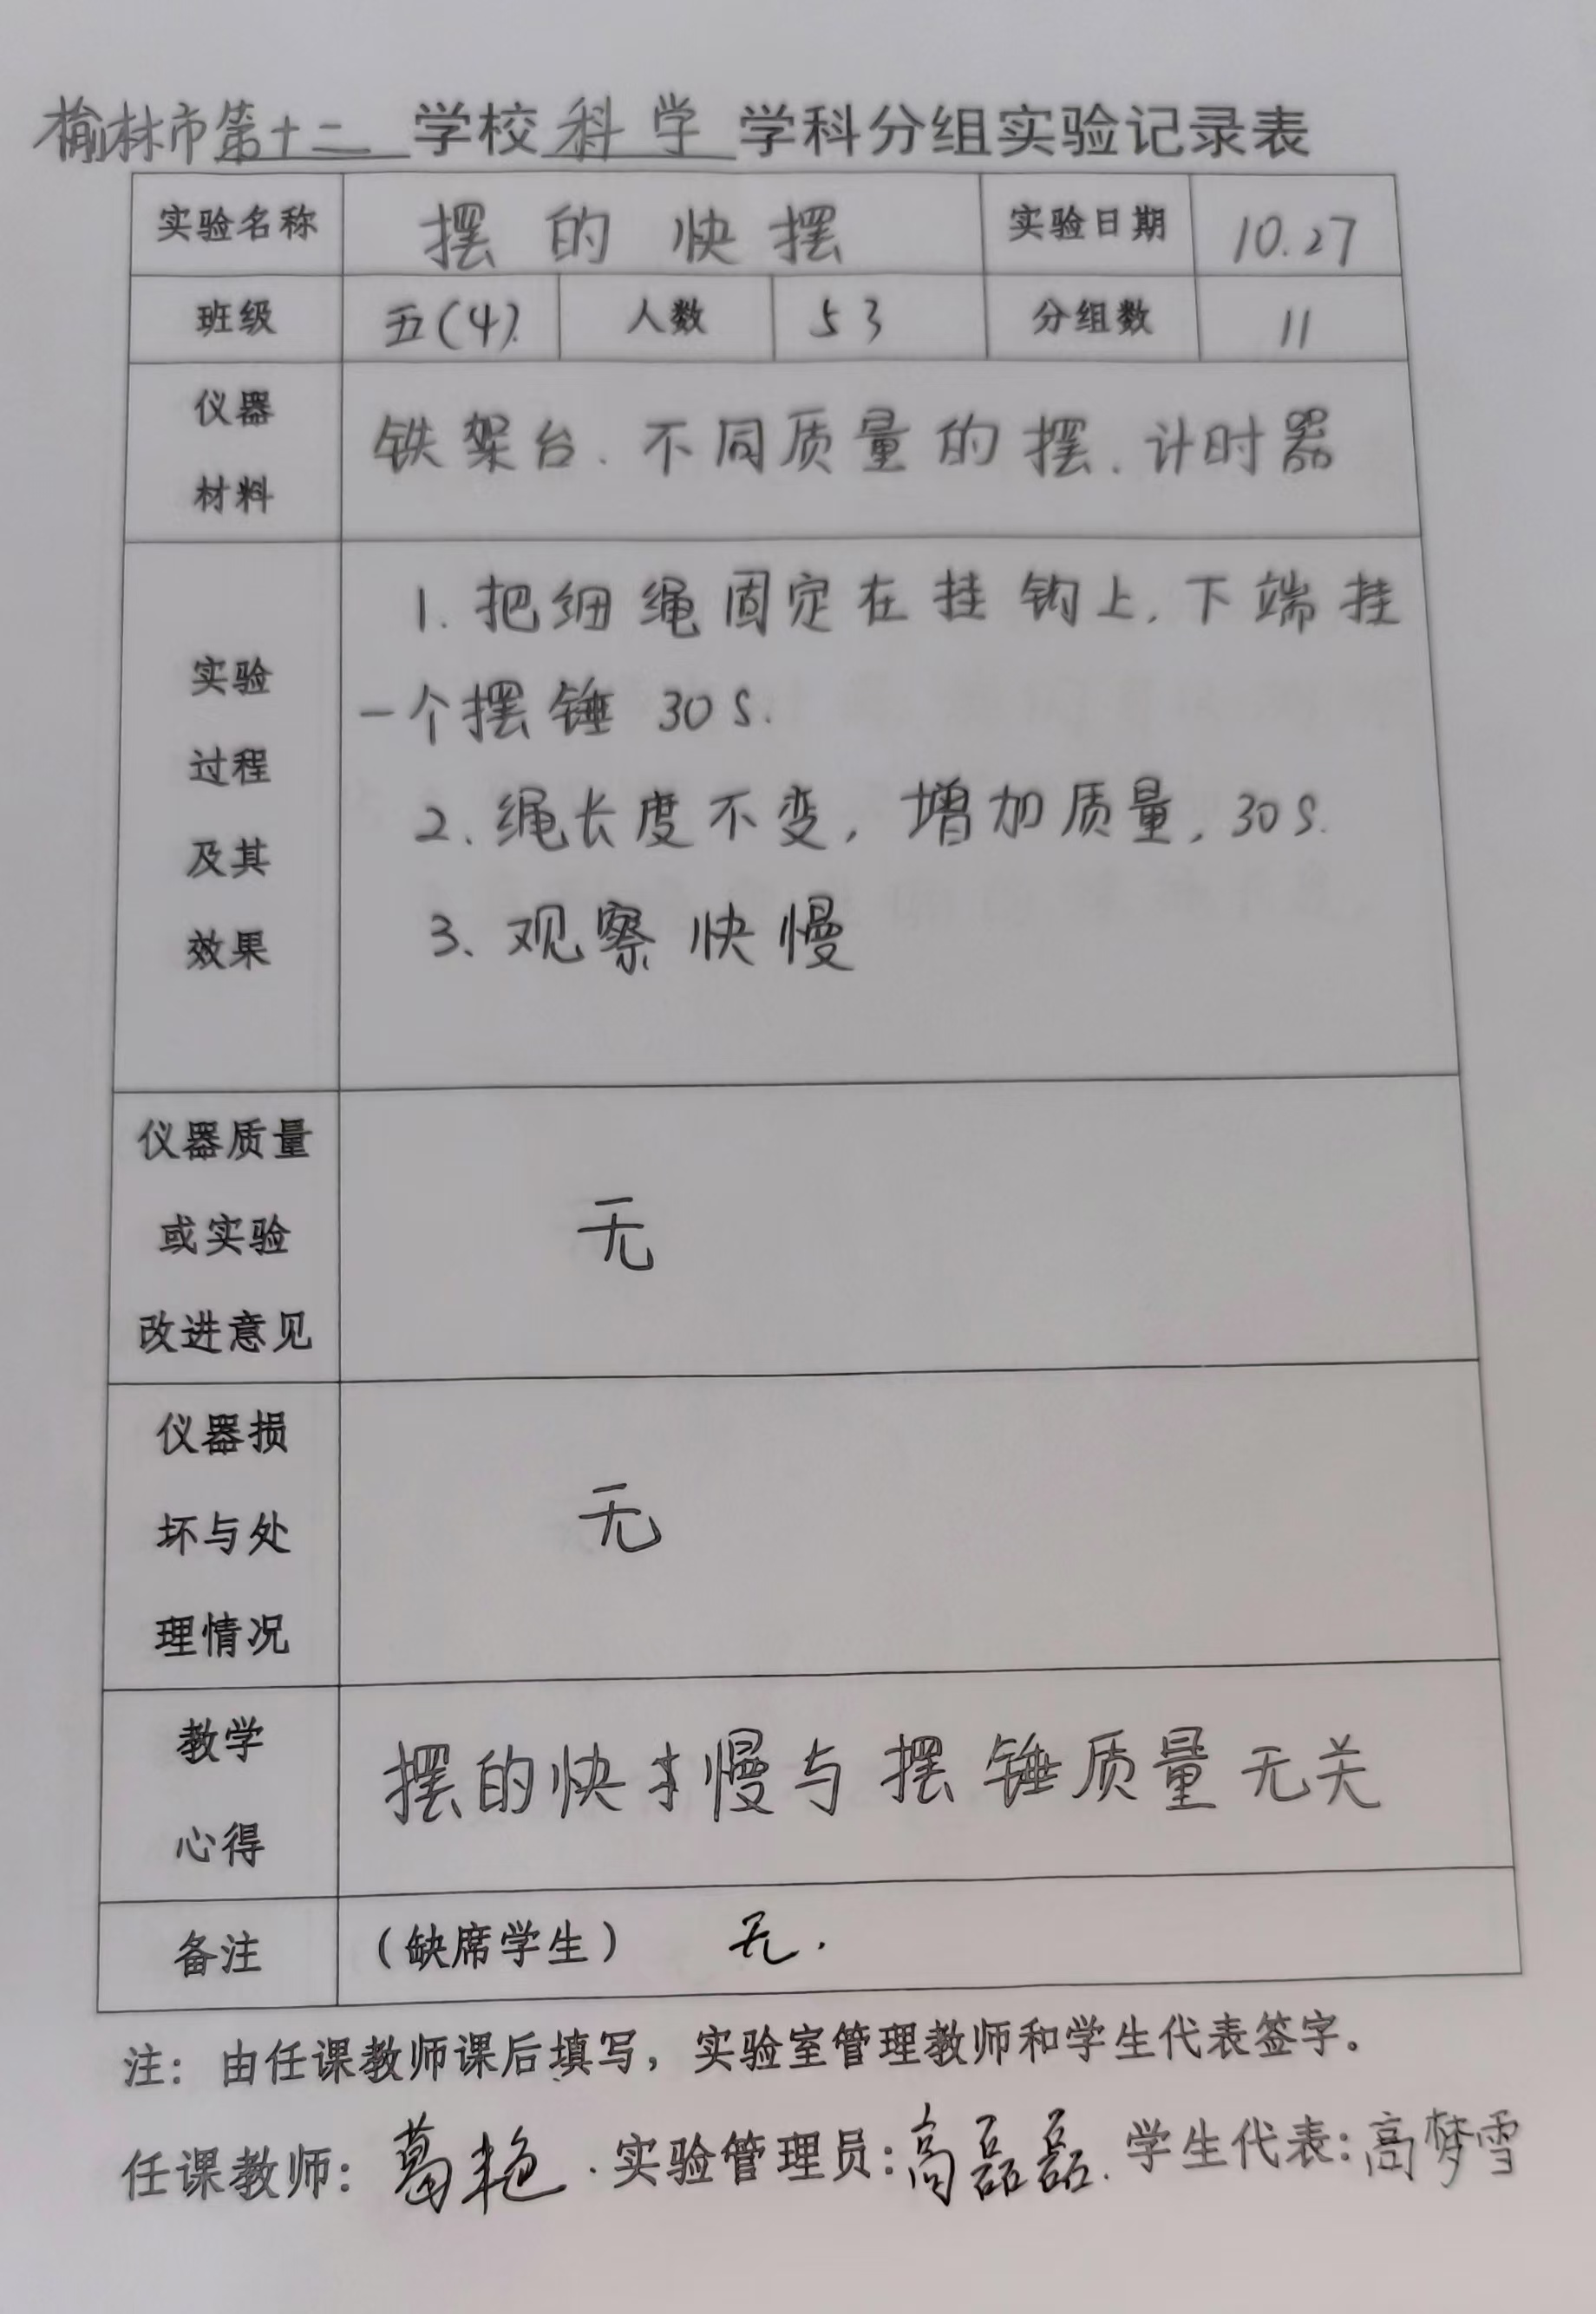 榆林市第十二学校科学学科分组实验记录表
实验名称 摆的快摆 实验日期 10.27
班级 五(4). 人数 53 分组数 11
仪器
材料
铁架台.不同质量的摆.计时器
实验
过程
及其
效果
1.把细绳固定在挂钩上,下端挂
一个摆锤 30S.
2.绳长度不变,增加质量,30S.
3、观察快慢
仪器质量
或实验
改进意见
无
仪器损
坏与处
理情况
无
教学
心得
摆的快慢与摆锤质量无关
备注 (缺席学生) 无.
注:由任课教师课后填写,实验室管理教师和学生代表签字。
任课教师:葛艳.实验管理员:高磊磊.学生代表:高梦雪